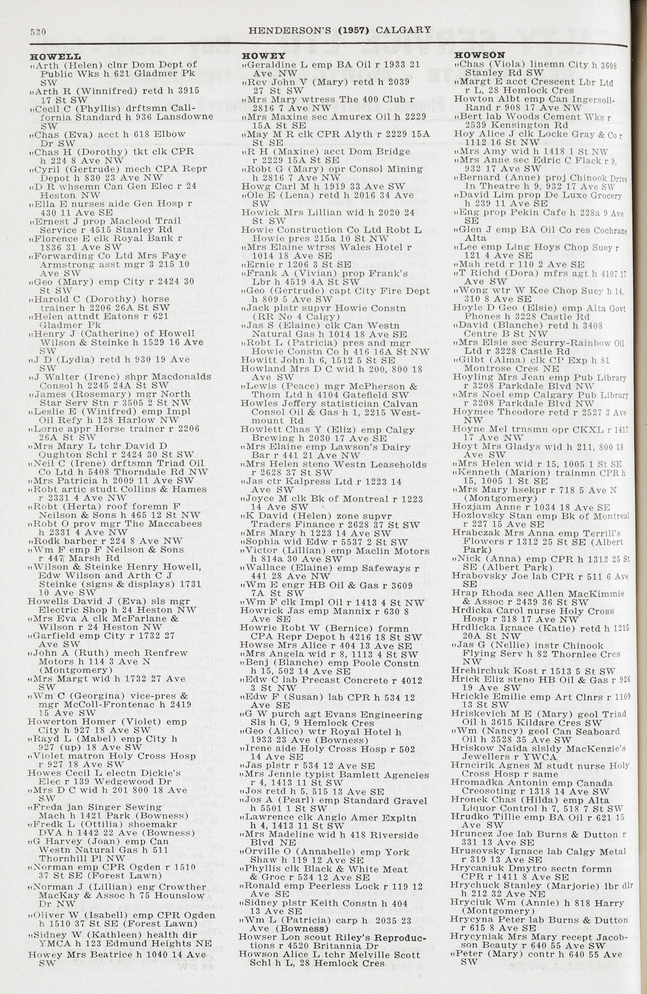 530
HENDERSON'S (1957) CALGARY
HOWELL
„Arth (Helen) clnr Dom Dept of
Public Wks h 621 Gladmer Pk
SW
„Arth R (Winnifred) retd h 3915
17 St SW
„Cecil C (Phyllis) drftsmn Cali-
fornia Standard h 936 Lansdowne
SW
„Chas (Eva) acct h 618 Elbow
Dr SW
„Chas H (Dorothy) tkt clk CPR
h 224 8 Ave NW
„Cyril (Gertrude) mech CPA Repr
Depot h 830 23 Ave NW
„D R whsemn Can Gen Elec r 24
Heston NW
„Ella E nurses aide Gen Hosp r
430 11 Ave SE
„Ernest J prop Macleod Trail
Service r 4515 Stanley Rd
„Florence E clk Royal Bank r
1836 31 Ave SW
„Forwarding Co Ltd Mrs Faye
Armstrong asst mgr 3 215 10
Ave SW
„Geo (Mary) emp City r 2424 30
St SW
„Harold C (Dorothy) horse
trainer h 2206 26A St SW
„Helen attndt Eatons r 621
Gladmer Pk
„Henry J (Catherine) of Howell
Wilson & Steinke h 1529 16 Ave
SW
„J D (Lydia) retd h 930 19 Ave
SW
„J Walter (Irene) shpr Macdonalds
Consol h 2245 24A St SW
„James (Rosemary) mgr North
Star Serv Stn r 3505 2 St NW
„Leslie E (Winifred) emp Impl
Oil Refy h 128 Harlow NW
„Lorne appr Horse trainer r 2206
26A St SW
„Mrs Mary L tchr David D
Oughton Schl r 2424 30 St SW
„Neil C (Irene) drftsmn Triad Oil
Co Ltd h 5408 Thorndale Rd NW
„Mrs Patricia h 2009 11 Ave SW
„Robt artic studt Collins & Hames
r 2331 4 Ave NW
„Robt (Herta) roof foremn F
Neilson & Sons h 465 12 St NW
„Robt O prov mgr The Maccabees
h 2331 4 Ave NW
„Rodk barber r 224 8 Ave NW
„Wm F emp F Neilson & Sons
r 447 Marsh Rd
„Wilson & Steinke Henry Howell,
Edw Wilson and Arth C J
Steinke (signs & displays) 1731
10 Ave SW
Howells David J (Eva) sls mgr
Electric Shop h 24 Heston NW
„Mrs Eva A clk McFarlane &
Wilson r 24 Heston NW
„Garfield emp City r 1732 27
Ave SW
„John A (Ruth) mech Renfrew
Motors h 114 3 Ave N
(Montgomery)
„Mrs Margt wid h 1732 27 Ave
SW
„Wm C (Georgina) vice-pres &
mgr McColl-Frontenac h 2419
15 Ave SW
Howerton Homer (Violet) emp
City h 927 18 Ave SW
„Rayd L (Mabel) emp City h
927 (up) 18 Ave SW
„Violet matron Holy Cross Hosp
r 927 18 Ave SW
Howes Cecil L electn Dickie's
Elec r 139 Wedgewood Dr
„Mrs D C wid h 201 800 18 Ave
SW
„Freda jan Singer Sewing
Mach h 1421 Park (Bowness)
„Fredk L (Ottilia) shoemakr
DVA h 1442 22 Ave (Bowness)
„G Harvey (Joan) emp Can
Westn Natural Gas h 511
Thornhill Pl NW
„Norman emp CPR Ogden r 1510
37 St SE (Forest Lawn)
„Norman J (Lillian) eng Crowther
MacKay & Assoc h 75 Hounslow
Dr NW
„Oliver W (Isabell) emp CPR Ogden
h 1510 37 St SE (Forest Lawn)
„Sidney W (Kathleen) health dir
YMCA h 123 Edmund Heights NE
Howey Mrs Beatrice h 1040 14 Ave
SW
HOWEY
„Geraldine L emp BA Oil r 1933 21
Ave NW
„Rev John V (Mary) retd h 2039
27 St SW
„Mrs Mary wtress The 400 Club r
2816 7 Ave NW
„Mrs Maxine sec Amurex Oil h 2229
15A St SE
„May M R clk CPR Alyth r 2229 15A
St SE
„R H (Maxine) acct Dom Bridge
r 2229 15A St SE
„Robt G (Mary) opr Consol Mining
h 2816 7 Ave NW
Howg Carl M h 1919 33 Ave SW
„Ole E (Lena) retd h 2016 34 Ave
SW
Howick Mrs Lillian wid h 2020 24
St SW
Howie Construction Co Ltd Robt L
Howie pres 215a 10 St NW
„Mrs Elaine wtrss Wales Hotel r
1014 18 Ave SE
„Ernie r 1206 3 St SE
„Frank A (Vivian) prop Frank's
Lbr h 4519 4A St SW
„Geo (Gertrude) capt City Fire Dept
h 809 5 Ave SW
„Jack plstr supvr Howie Constn
(RR No 4 Calgy)
„Jas S (Elaine) clk Can Westn
Natural Gas h 1014 18 Ave SE
„Robt L (Patricia) pres and mgr
Howie Constn Co h 416 16A St NW
Howitt John h 6, 1512 5 St SE
Howland Mrs D C wid h 200, 800 18
Ave SW
„Lewis (Peace) mgr McPherson &
Thom Ltd h 4104 Gatefield SW
Howles Jeffery statistician Calvan
Consol Oil & Gas h 1, 2215 West-
mount Rd
Howlett Chas Y (Eliz) emp Calgy
Brewing h 2030 17 Ave SE
„Mrs Elaine emp Lawson's Dairy
Bar r 441 21 Ave NW
„Mrs Helen steno Westn Leaseholds
r 2628 37 St SW
„Jas ctr Kalpress Ltd r 1223 14
Ave SW
„Joyce M clk Bk of Montreal r 1223
14 Ave SW
„K David (Helen) zone supvr
Traders Finance r 2628 37 St SW
„Mrs Mary h 1223 14 Ave SW
„Sophia wid Edw r 5537 2 St SW
„Victor (Lillian) emp Maclin Motors
h 814a 30 Ave SW
„Wallace (Elaine) emp Safeways r
441 28 Ave NW
„Wm E engr HB Oil & Gas r 3609
7A St SW
„Wm F clk Impl Oil r 1413 4 St NW
Howrick Jas emp Mannix r 630 8
Ave SE
Howrie Robt W (Bernice) formn
CPA Repr Depot h 4216 18 St SW
Howse Mrs Alice r 404 13 Ave SE
„Mrs Angela wid r 8, 1113 4 St SW
„Benj (Blanche) emp Poole Constn
h 15, 502 14 Ave SW
„Edw C lab Precast Concrete r 4012
3 St NW
„Edw F (Susan) lab CPR h 534 12
Ave SE
„G W purch agt Evans Engineering
Sls h G, 9 Hemlock Cres
„Geo (Alice) wtr Royal Hotel h
1933 23 Ave (Bowness)
„Irene aide Holy Cross Hosp r 502
14 Ave SE
„Jas plstr r 534 12 Ave SE
„Mrs Jennie typist Ramlett Agencies
r 4, 1413 11 St SW
„Jos retd h 5, 515 13 Ave SE
„Jos A (Pearl) emp Standard Gravel
h 5501 1 St SW
„Lawrence clk Anglo Amer Expltn
h 4, 1413 11 St SW
„Mrs Madeline wid h 418 Riverside
Blvd NE
„Orville O (Annabelle) emp York
Shaw h 119 12 Ave SE
„Phyllis clk Black & White Meat
& Groc r 534 12 Ave SE
„Ronald emp Peerless Lock r 119 12
Ave SE
„Sidney plstr Keith Constn h 404
13 Ave SE
„Wm L (Patricia) carp h 2035 23
Ave (Bowness)
Howser Lon scout Riley's Reproduc-
tions r 4520 Britannia Dr
Howson Alice L tchr Melville Scott
Schl h L, 28 Hemlock Cres
HOWSON
„Chas (Viola) linemn City h 3608
Stanley Rd SW
„Margt E acct Crescent Lbr Ltd
r L, 28 Hemlock Cres
Howton Albt emp Can Ingersoll-
Rand r 908 17 Ave NW
„Bert lab Woods Cement Wks r
2539 Kensington Rd
Hoy Alice J clk Locke Gray & Co r
1112 16 St NW
„Mrs Amy wid h 1418 1 St NW
„Mrs Anne sec Edric C Flack r 9,
932 17 Ave SW
„Bernard (Anne) proj Chinook Drive
In Theatre h 9, 932 17 Ave SW
„David Lim prop De Luxe Grocery
h 239 11 Ave SE
„Eng prop Pekin Cafe h 228a 9 Ave
SE
„Glen J emp BA Oil Co res Cochrane
Alta
„Lee emp Ling Hoys Chop Suey r
121 4 Ave SE
„Mah retd r 110 2 Ave SE
„T Richd (Dora) mfrs agt h 4107 17
Ave SW
„Wong wtr W Kee Chop Suey h 14,
310 8 Ave SE
Hoyle D Geo (Elsie) emp Alta Govt
Phones h 3228 Castle Rd
„David (Blanche) retd h 3408
Centre B St NW
„Mrs Elsie sec Scurry-Rainbow Oil
Ltd r 3228 Castle Rd
„Gilbt (Alma) clk CP Exp h 81
Montrose Cres NE
Hoyling Mrs Jean emp Pub Library
r 3208 Parkdale Blvd NW
„Mrs Noel emp Calgary Pub Library
r 3208 Parkdale Blvd NW
Hoymee Theodore retd r 2527 3 Ave
NW
Hoyne Mel trnsmn opr CKXL r 1417
17 Ave NW
Hoyt Mrs Gladys wid h 211, 800 18
Ave SW
„Mrs Helen wid r 15, 1005 1 St SE
„Kenneth (Marion) trainmn CPR h
15, 1005 1 St SE
„Mrs Mary hsekpr r 718 5 Ave N
(Montgomery)
Hozjam Anne r 1034 18 Ave SE
Hozlovsky Stan emp Bk of Montreal
r 227 15 Ave SW
Hrabczak Mrs Anna emp Terrill's
Flowers r 1312 25 St SE (Albert
Park)
„Nick (Anna) emp CPR h 1312 25 St
SE (Albert Park)
Hrabovsky Joe lab CPR r 511 6 Ave
SE
Hrap Rhoda sec Allen MacKimmie
& Assoc r 2439 36 St SW
Hrdicka Carol nurse Holy Cross
Hosp r 318 17 Ave NW
Hrdlicka Ignace (Katie) retd h 1215
20A St NW
„Jas G (Nellie) instr Chinook
Flying Serv h 82 Thornlee Cres
NW
Hrehirchuk Kost r 1513 5 St SW
Hrick Eliz steno HB Oil & Gas r 926
19 Ave SW
Hrickle Emilie emp Art Clnrs r 1109
13 St SW
Hriskevich M E (Mary) geol Triad
Oil h 3615 Kildare Cres SW
„Wm (Nancy) geol Can Seaboard
Oil h 3528 35 Ave SW
Hriskow Naida slsldy MacKenzie's
Jewellers r YWCA
Hrncirik Agnes M studt nurse Holy
Cross Hosp r same
Hromadka Antonin emp Canada
Creosoting r 1318 14 Ave SW
Hronek Chas (Hilda) emp Alta
Liquor Control h 7, 518 7 St SW
Hrudko Tillie emp BA Oil r 621 15
Ave SW
Hruncez Joe lab Burns & Dutton r
331 13 Ave SE
Hrusovsky Ignace lab Calgy Metal
r 319 13 Ave SE
Hrycaniuk Dmytro sectn formn
CPR r 1411 8 Ave SE
Hrychuck Stanley (Marjorie) lbr dlr
h 212 32 Ave NE
Hryciuk Wm (Annie) h 818 Harry
(Montgomery)
Hrycyna Peter lab Burns & Dutton
r 615 8 Ave SE
Hrycyniak Mrs Mary recept Jacob-
son Beauty r 640 55 Ave SW
„Peter (Mary) contr h 640 55 Ave
SW